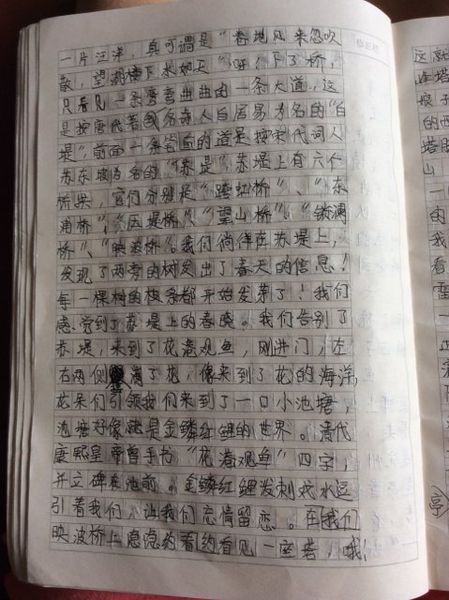 一片汪洋，真可谓是“卷地风来忽吹
散，望湖楼下水如天”呀！下了桥，
只看见一条弯弯曲曲由一条大道，这
是按唐代著名诗人白居易为名的“白
堤”，前面一条笔直的道是按宋代词人
苏东坡为名的“苏堤”，苏堤上有六个
桥梁，它们分别是“跨虹桥”、“东
浦桥”、“压堤桥”、“望山桥”、“锁澜
桥”、“映波桥”。我们徜徉在苏堤上，
发现了两旁的树发出了春天的信息！
每一棵树的枝条都开始发芽了！我们
感觉到了苏堤上的春晓。我们告别了
苏堤，来到了花港观鱼，刚进门，左
右两侧 满了花，像来到了花的海洋，
花朵们引领我们来到了一口小池塘，
池塘好像就是金鳞红鲤的世界。清代
康熙皇帝曾手书“花港观鱼”四字，
并立碑在池前。金鳞红鲤发刺戏水逗
引着我们，让我们恋情留恋。在我们
映波桥上隐隐约看约看见一座塔，哦！
这就
连塔
娘子
的西
塔
山
一
的
我
看
雷
亭